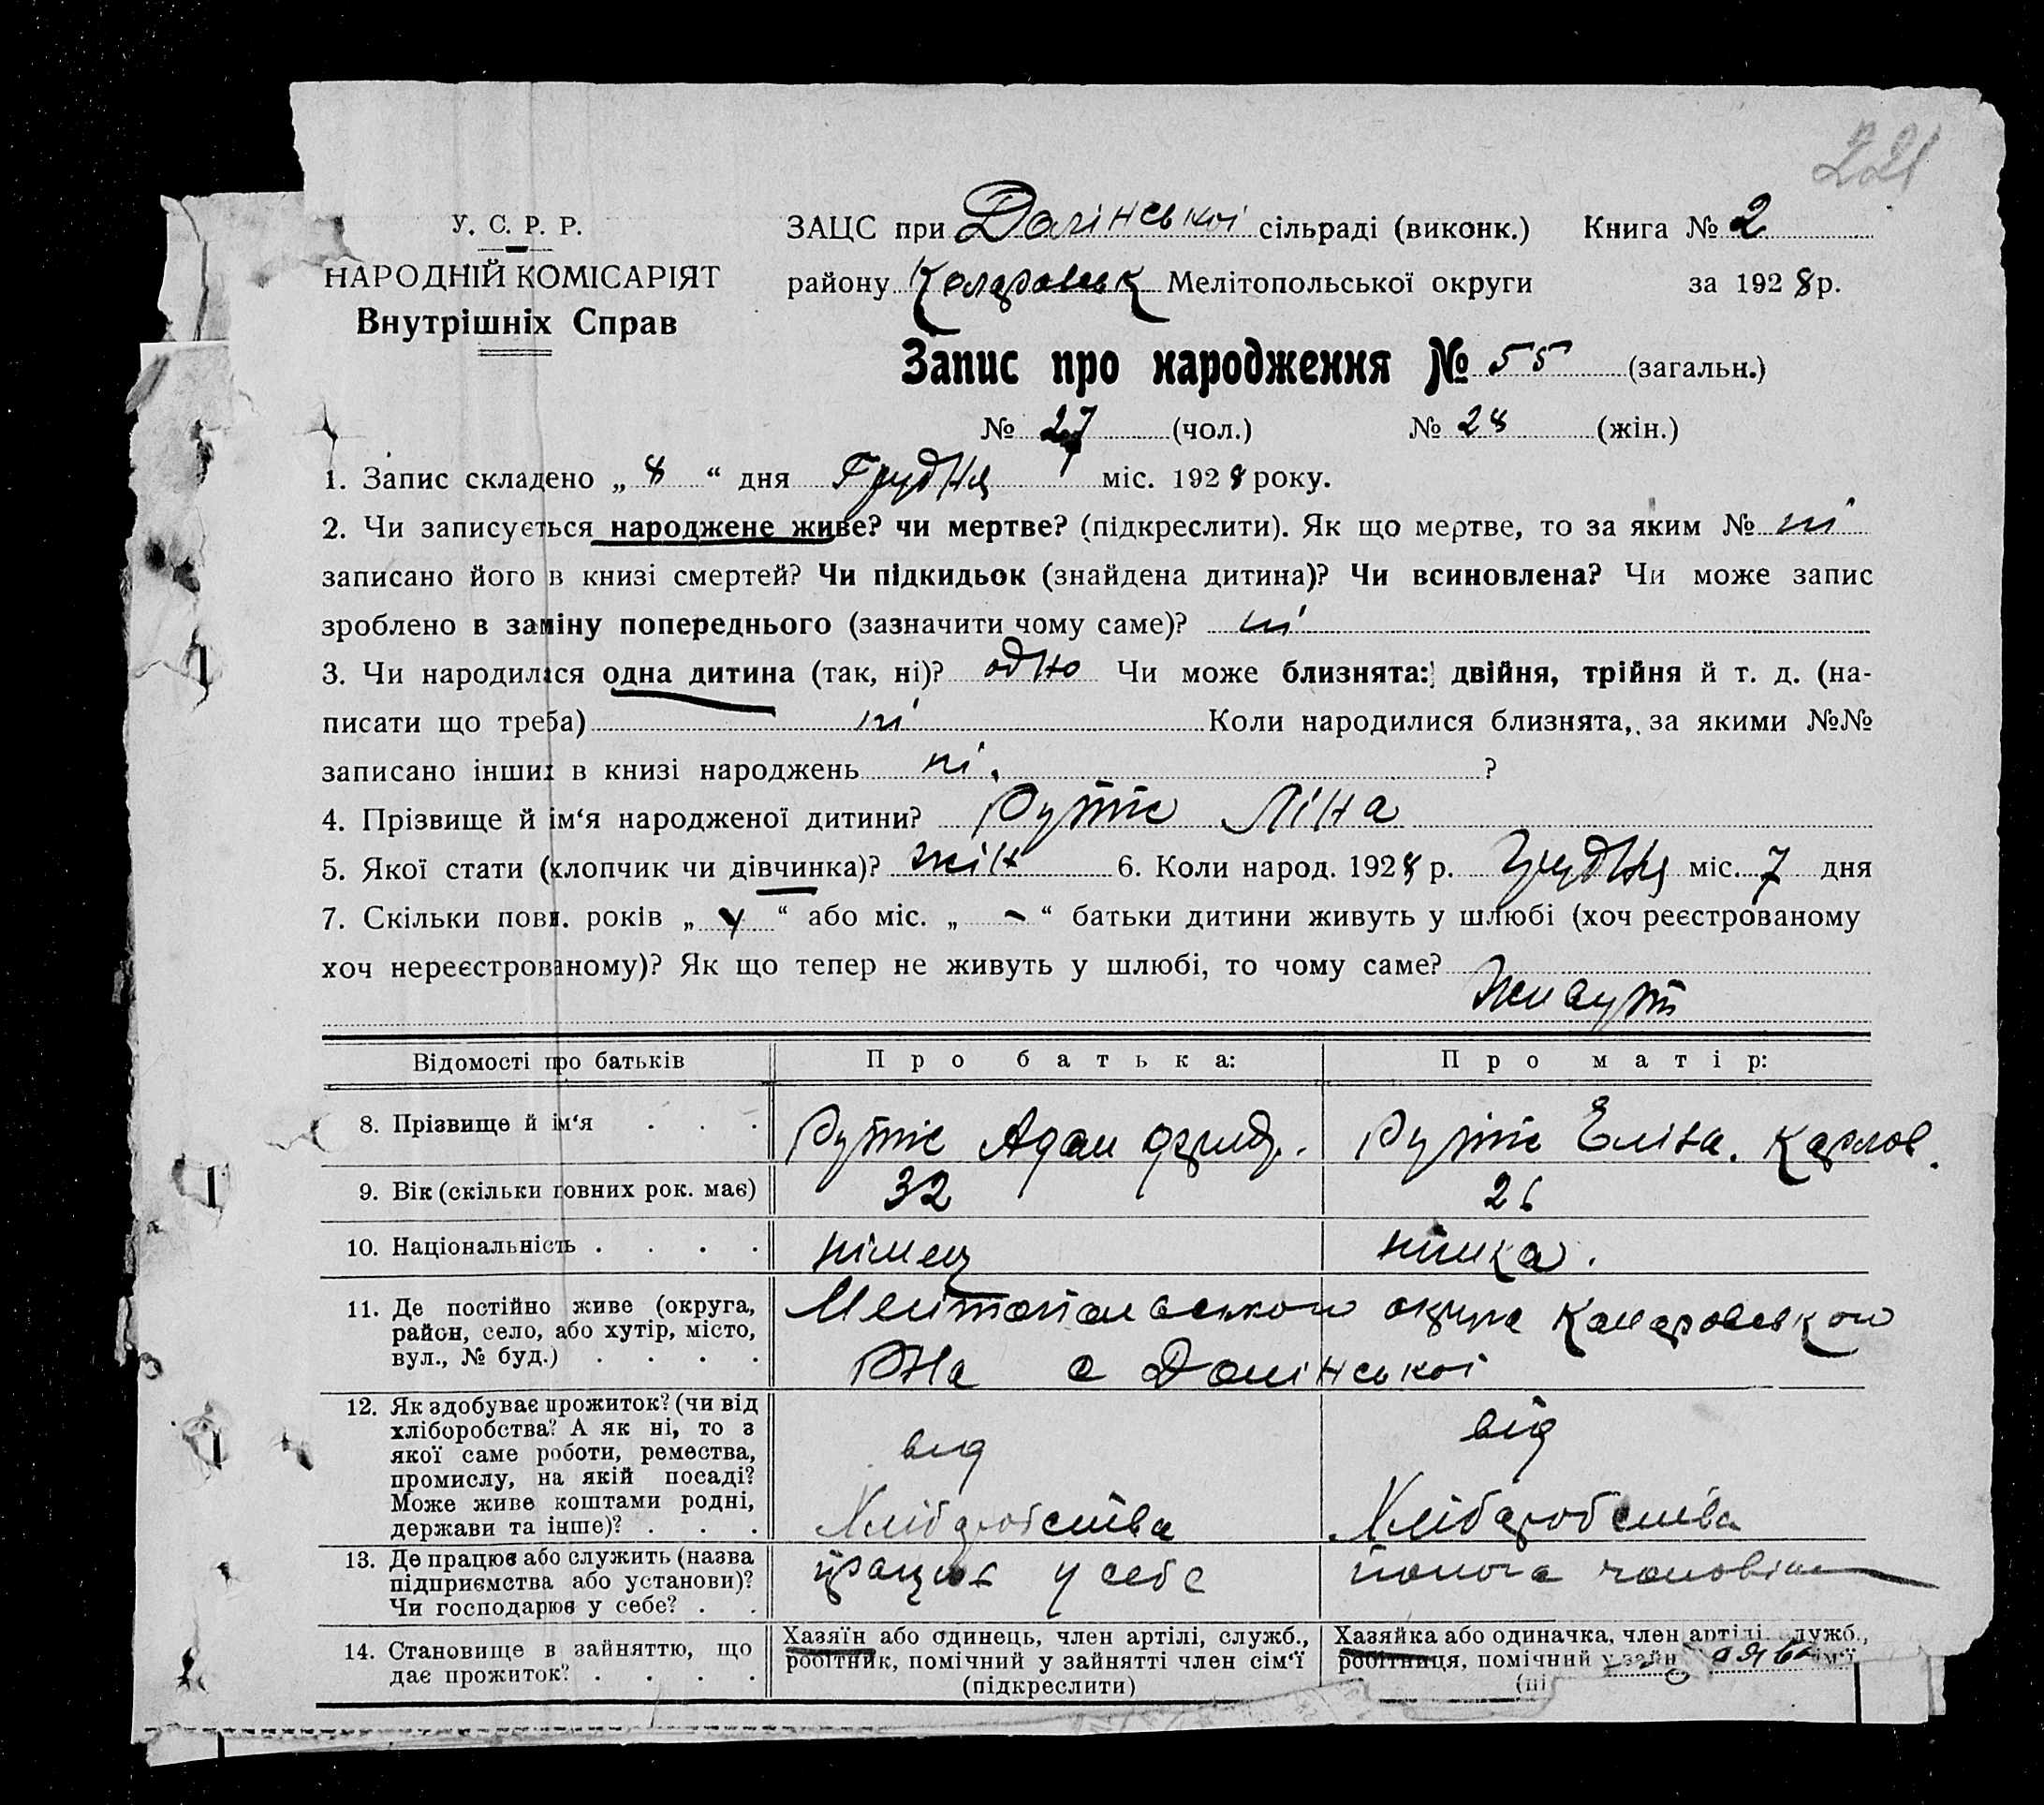 221
У. С. Р. Р.
НАРОДНІЙ КОМІСАРІЯТ
Внутрішніх Справ
ЗАЦС при Долінської сільраді (виконк.) Книга № 2
району Коларовськ Мелітопольської округи за 1928 р.
Запис про народження № 55 (загальн.)
№ 27 (чол.) № 28 (жін.)
1. Запис складено „ 8 “ дня Грудня міс. 1928 року.
2. Чи записується народжене живе? чи мертве? (підкреслити). Як що мертве, то за яким № ні
записано його в книзі смертей? Чи підкидьок (знайдена дитина)? Чи всиновлена? Чи може запис
зроблено в заміну попереднього (зазначити чому саме)? ні
3. Чи народилися одна дитина (так, ні)? одно Чи може близнята: двійня, трійня й т. д. (на-
писати що треба) ні Коли народилися близнята, за якими №№
записано інших в книзі народжень ні. ?
4. Прізвище й ім‘я народженої дитини? Рутте Ліна
5. Якої стати (хлопчик чи дівчинка)? жін 6. Коли народ. 1928 р. Грудня міс. 7 дня
7. Скільки повн. років „ “ або міс. „ - “ батьки дитини живуть у шлюбі (хоч реєстрованому
хоч нереєстрованому)? Як що тепер не живуть у шлюбі, то чому саме?
Живуть
Відомості про батьків Про батька: Про матір:
8. Прізвище й ім‘я . . . Рутте Адам Фрид. Рутте Еліза. Карлов.
9. Вік (скільки повних рок. має) 32 26
10. Національність . . . . німец німка.
11. Де постійно живе (округа,
район, село, або хутір, місто,
вул., № буд.) . . . .
Мелітопольськой округе Коларовськой
РНа с Долінської
12. Як здобуває прожиток? (чи від
хліборобства? А як ні, то з
якої саме роботи, ремества,
промислу, на якій посаді?
Може живе коштами родні,
держави та інше)? . . .
від
Хліборобства
від
Хліборобства
13. Де працює або служить (назва
підприємства або установи)?
Чи господарює у себе? . .
працює у себе
14. Становище в зайняттю, що
дає прожиток? . . . .
Хазяїн або одинець, член артілі, служб.,
робітник, помічний у зайнятті член сім‘ї
(підкреслити)
Хазяйка або одиначка, член артілі служб.,
робітниця, помічний у зайн сім‘ї